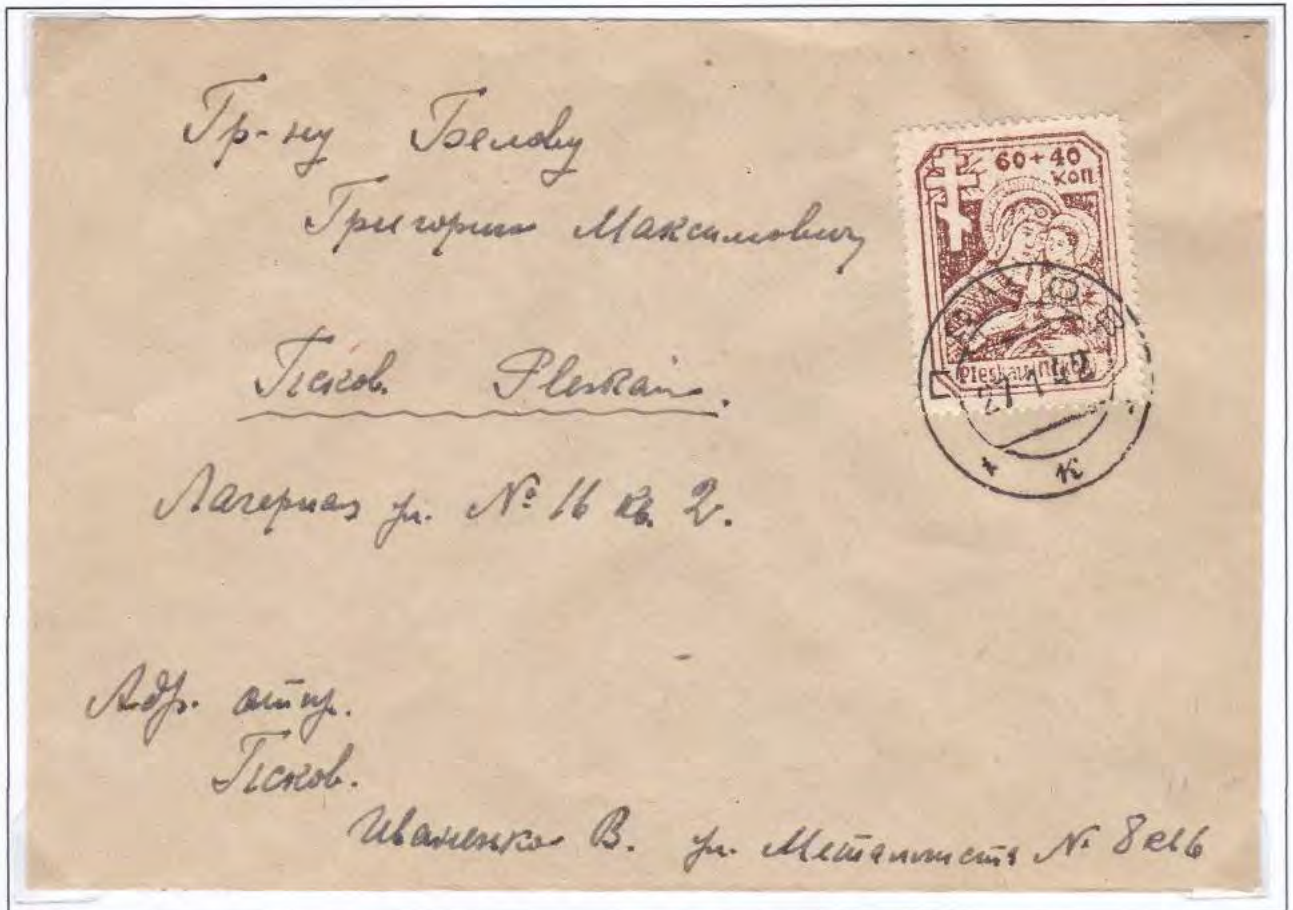 Гр-ну Белову
Григорию Максимовичу
Псков. Pleskau.
Лагерная ул. № 16 кв. 2.
60 + 40
коп
Pleskau
27 1 42
к
Адр. отпр.
Псков.
Иваненко В. ул. Металлиста №